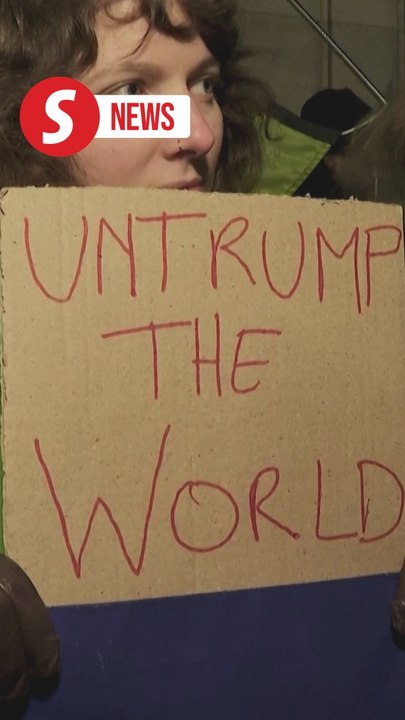 S NEWS
UNTRUMP
THE
WORLD